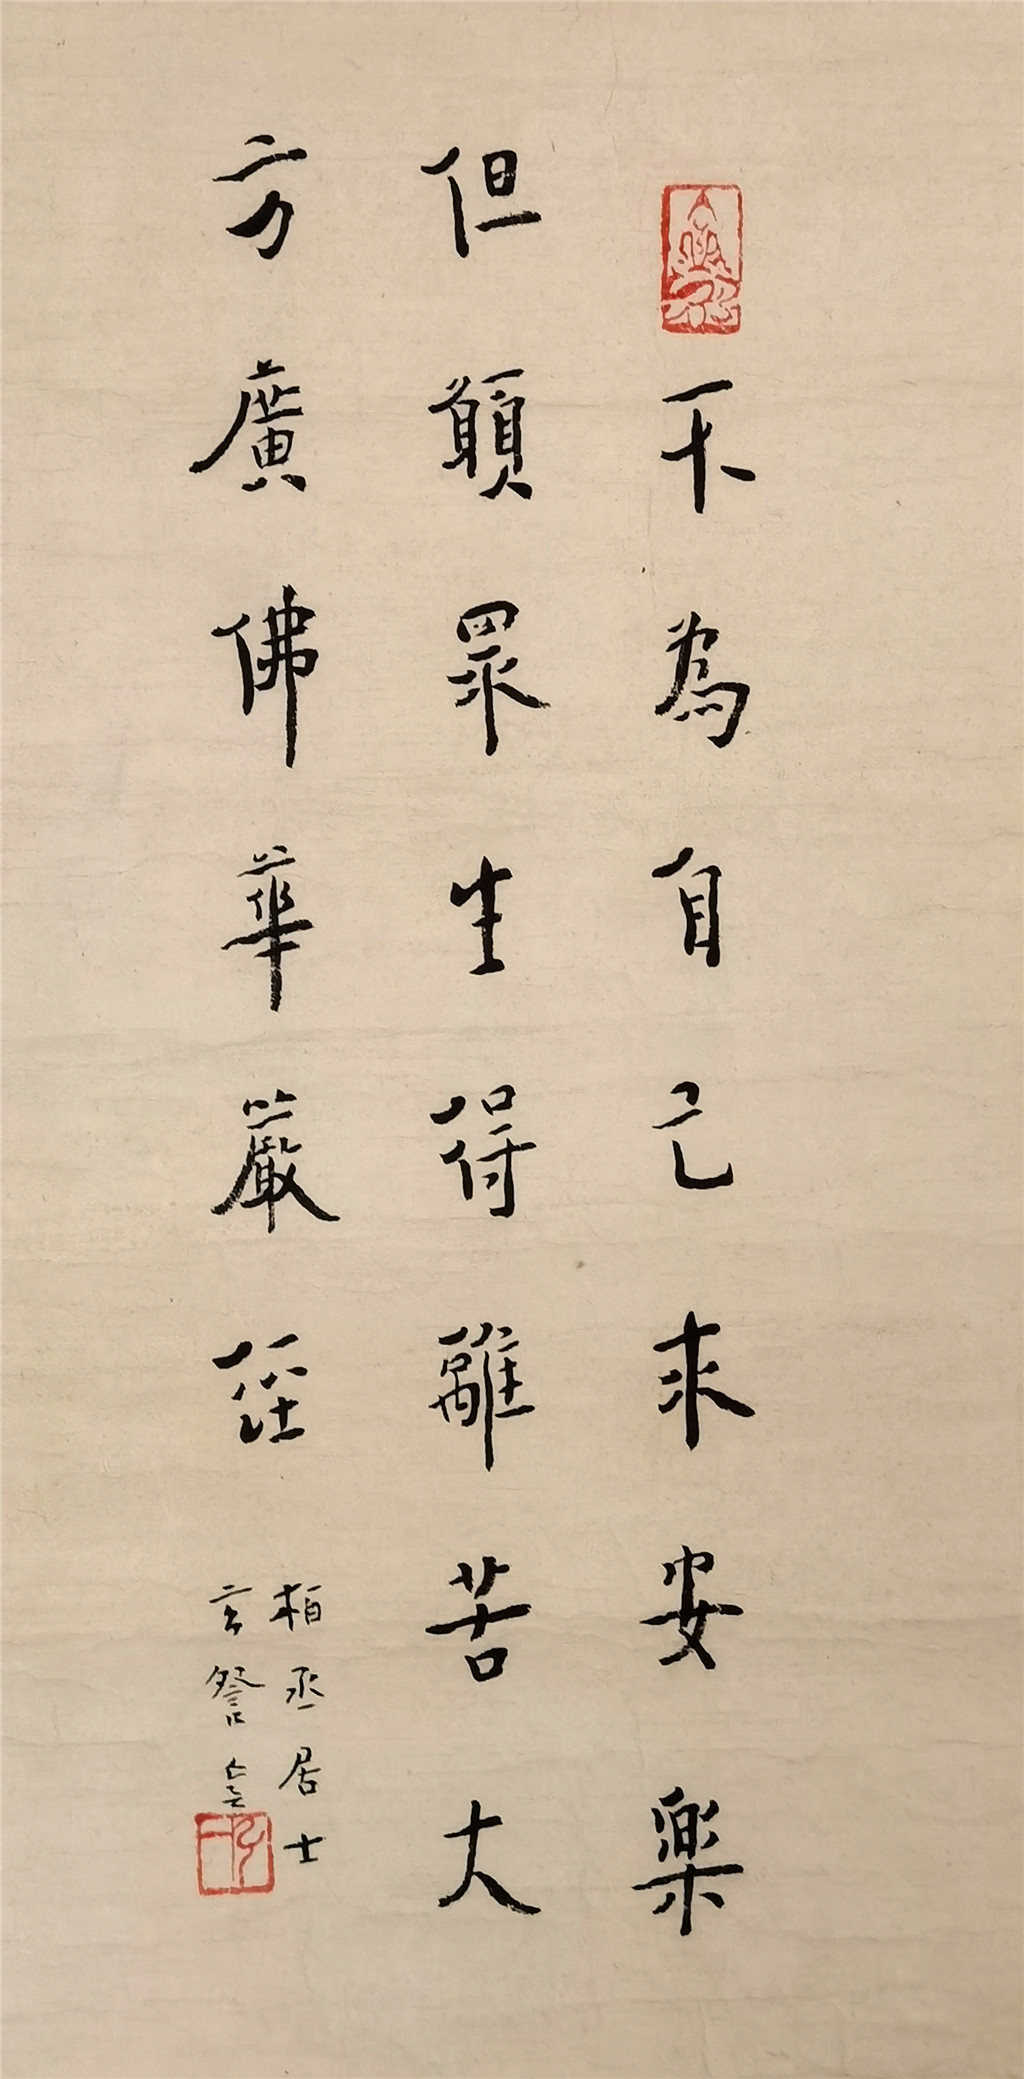 不為自己求安樂
但願眾生得離苦大
方廣佛華嚴經
柏丞居士
玄詧書